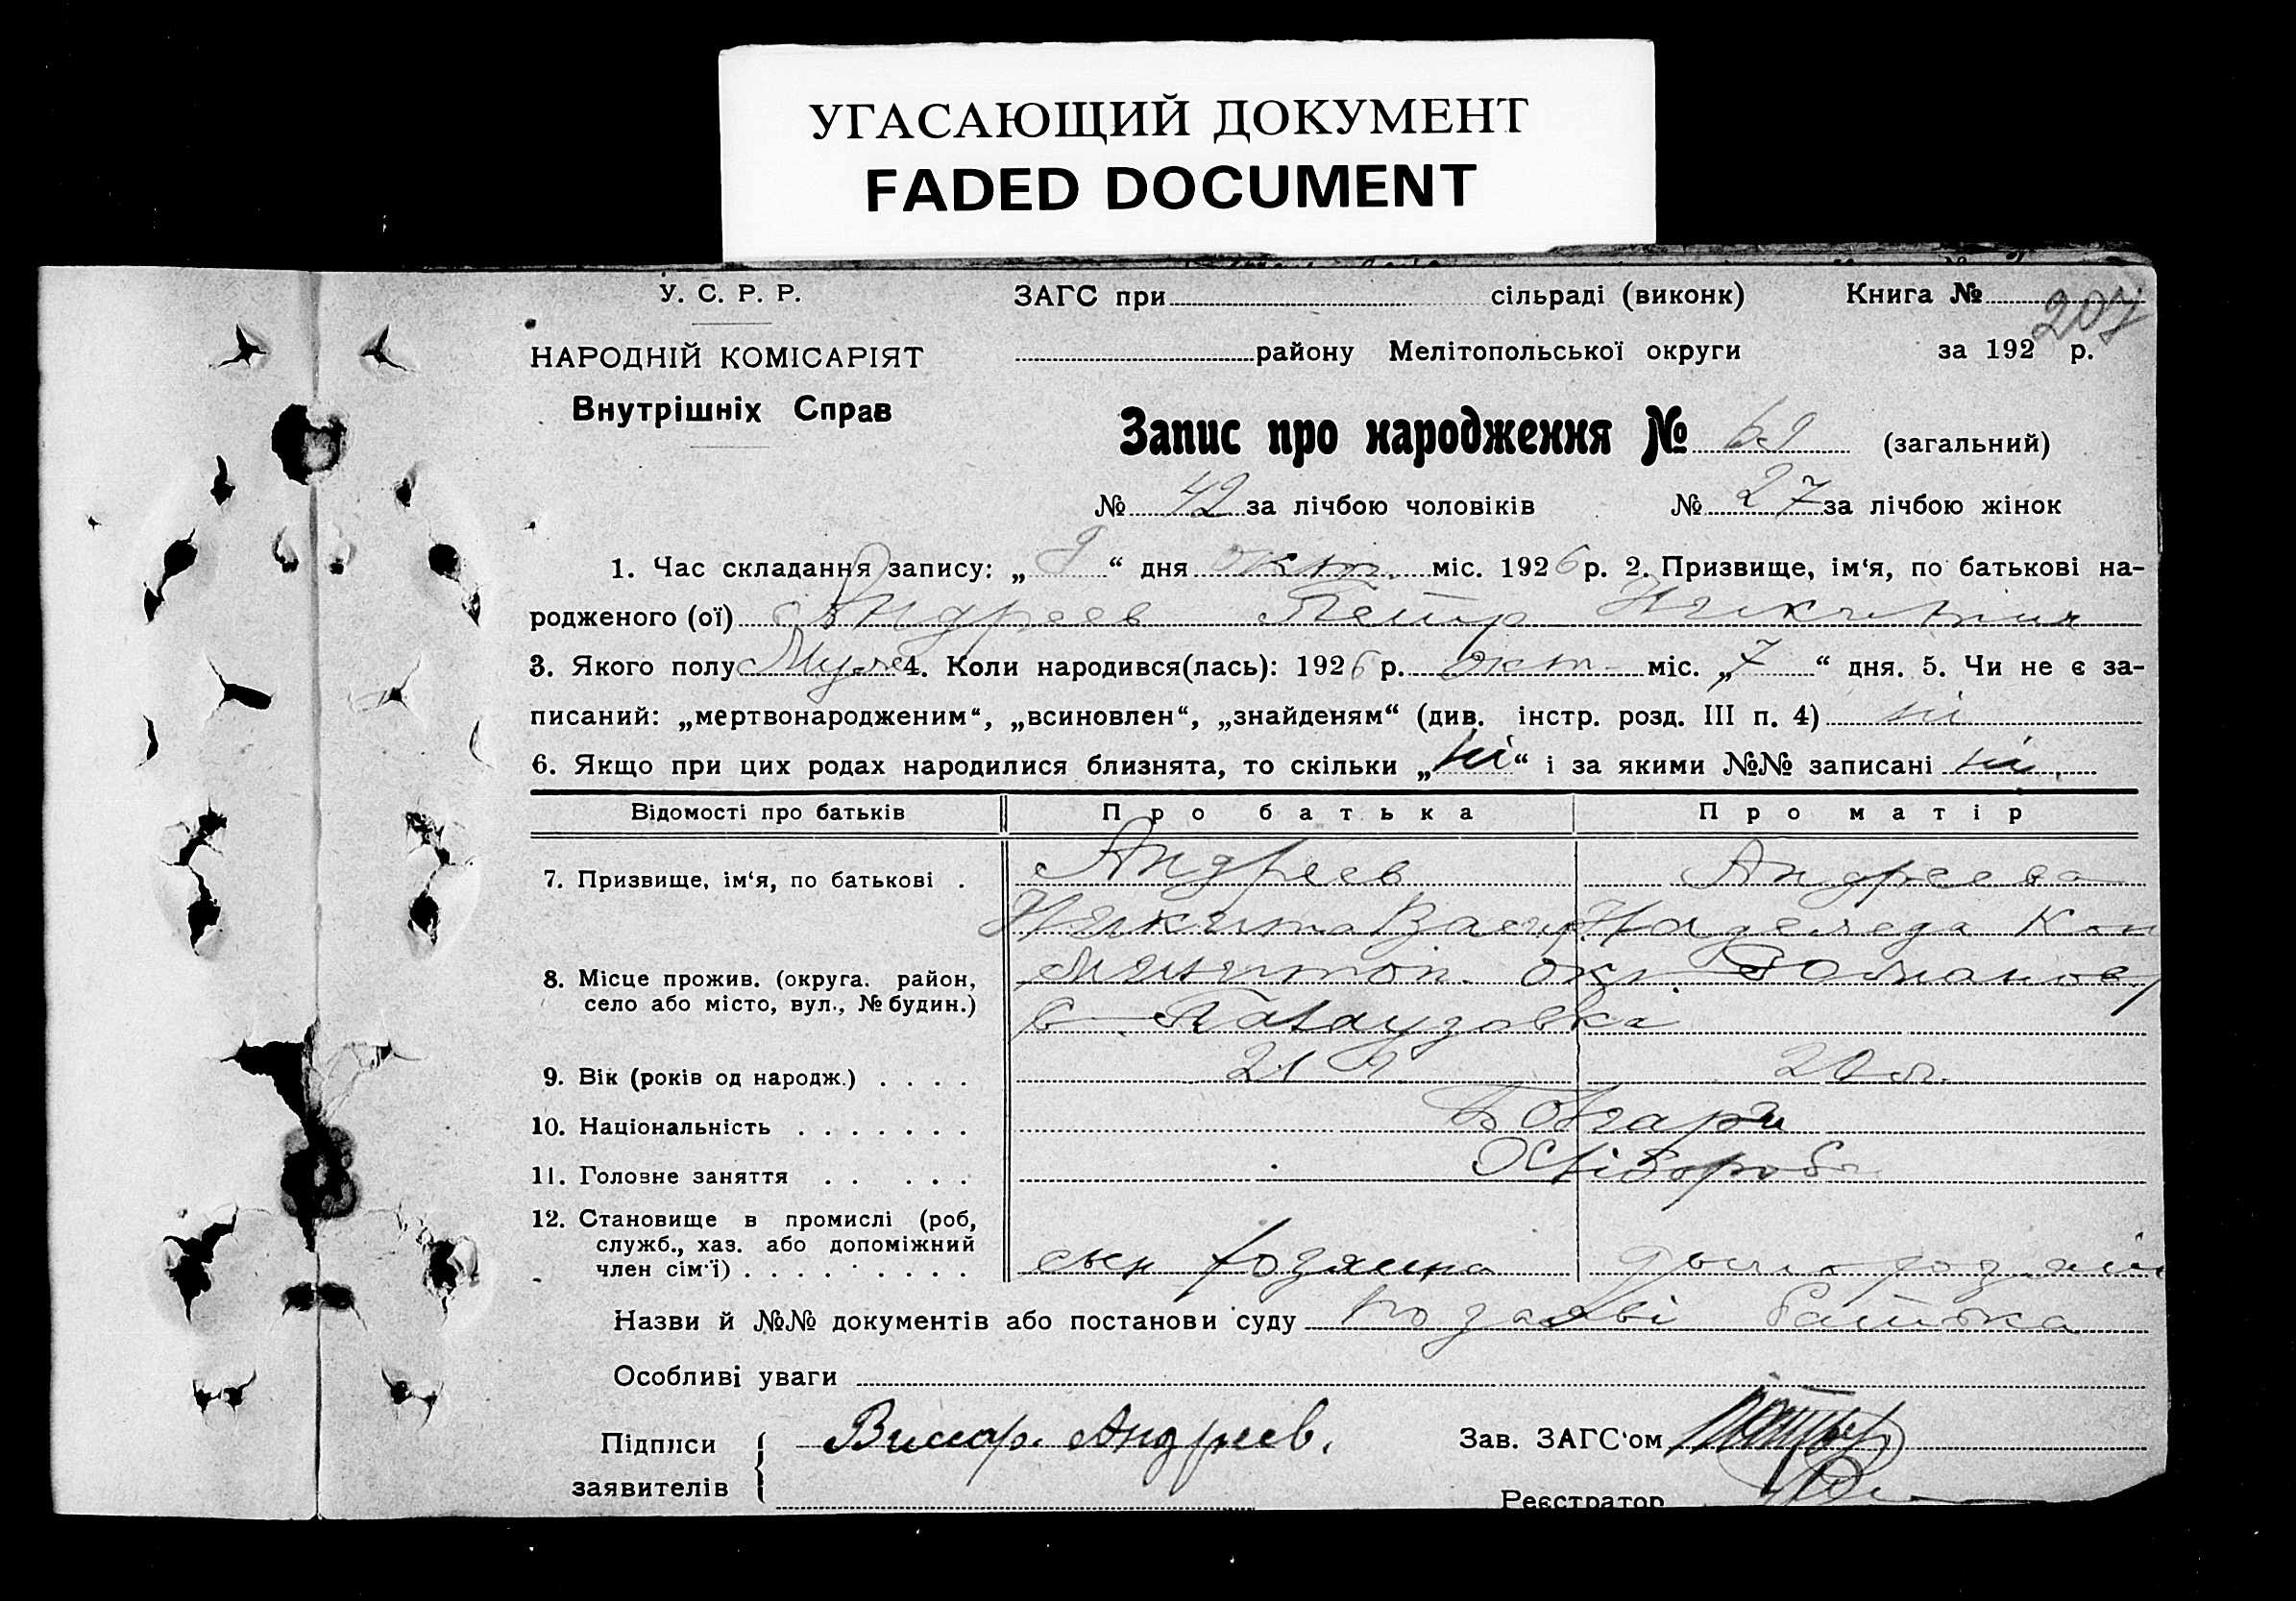 УГАСАЮЩИЙ ДОКУМЕНТ
FADED DOCUMENT
У. С. Р. Р.
НАРОДНІЙ КОМІСАРІЯТ
Внутрішніх Справ
ЗАГС при сільраді (виконк) Книга №
207
району Мелітопольської округи за 192 р.
Запис про народження № 69 (загальний)
№ 42 за лічбою чоловіків № 27 за лічбою жінок
1. Час складання запису: „ 9 “ дня окт. міс. 1926 р. 2. Призвище, ім‘я, по батькові на-
родженого (ої) Андреев Петр Никитин
3. Якого полу Муж 4. Коли народився(лась): 1926 р. окт міс. „ 7 “ дня. 5. Чи не є за-
писаний: „мертвонародженим“, „всиновлен“, „знайденям“ (див. інстр. розд. III п. 4) ні
6. Якщо при цих родах народилися близнята, то скільки „ ні “ і за якими №№ записані ні.
Відомості про батьків Про батька Про матір
7. Призвище, ім‘я, по батькові . Андреев Андреева
Никита Васил. Надежда Кон
8. Місце прожив. (округа. район,
село або місто, вул., № будин.)
окр. Романов
с.
9. Вік (років од народж.) . . . . 21 л. 20 л.
10. Національність . . . . . . . Болгари
11. Головне заняття . . . . . Хлібороб
12. Становище в промислі (роб,
служб., хаз. або допоміжний
член сім‘ї) . . . . . . . . . сын хозяина
Назви й №№ документів або постанови суду по заяві батька
Особливі уваги
Підписи
заявителів
Андреев.
Зав. ЗАГС‘ом
Реєстратор